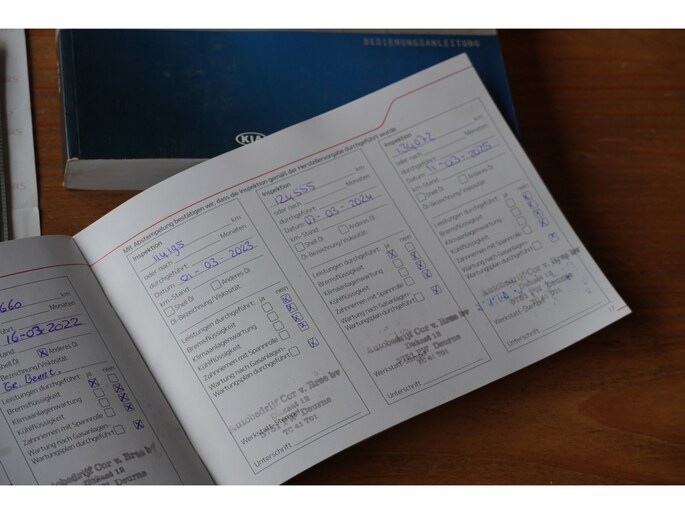 BEDIENUNGSANLEITUNG
KIA
660 km
führt
16-03-2022
Shell Öl Anderes Öl
Bezeichnung/Viskosität:
Leistungen durchgeführt: ja nein
Bremsflüssigkeit
Klimaanlagenwartung
Kühlflüssigkeit
Zahnriemen mit Spannrolle
Wartung nach Gasanlagen-
Wartungsplan durchgeführt
Autobedrijf Cor v. Bree bv
Dukaat 12
Deurne
Mit Abstempelung bestätigen wir, dass die Inspektion gemäß der Herstellervorgabe durchgeführt wurde.
Inspektion
114195 km
oder nach Monaten
durchgeführt
Datum: 01-03-2023
km-Stand
Shell Öl Anderes Öl
Öl-Bezeichnung/Viskosität:
Leistungen durchgeführt: ja nein
Bremsflüssigkeit
Klimaanlagenwartung
Kühlflüssigkeit
Zahnriemen mit Spannrolle
Wartung nach Gasanlagen-
Wartungsplan durchgeführt
Autobedrijf Cor v. Bree bv
Dukaat 12
5751 PW Deurne
TC 41 T01
Werkstatt
Unterschrift
Inspektion
124555 km
oder nach Monaten
durchgeführt
Datum: 01-03-2024
km-Stand
Shell Öl Anderes Öl
Öl-Bezeichnung/Viskosität:
Leistungen durchgeführt: ja nein
Bremsflüssigkeit
Klimaanlagenwartung
Kühlflüssigkeit
Zahnriemen mit Spannrolle
Wartung nach Gasanlagen-
Wartungsplan durchgeführt
Autobedrijf Cor v. Bree bv
Dukaat 12
5751 PW Deurne
TC 41 T01
Werkstatt
Unterschrift
Inspektion
134072 km
oder nach Monaten
durchgeführt
Datum: 11-03-2025
km-Stand
Shell Öl Anderes Öl
Öl-Bezeichnung/Viskosität:
Leistungen durchgeführt: ja nein
Bremsflüssigkeit
Klimaanlagenwartung
Kühlflüssigkeit
Zahnriemen mit Spannrolle
Wartung nach Gasanlagen-
Wartungsplan durchgeführt
Autobedrijf Cor v. Bree bv
Werkstatt
Unterschrift
11